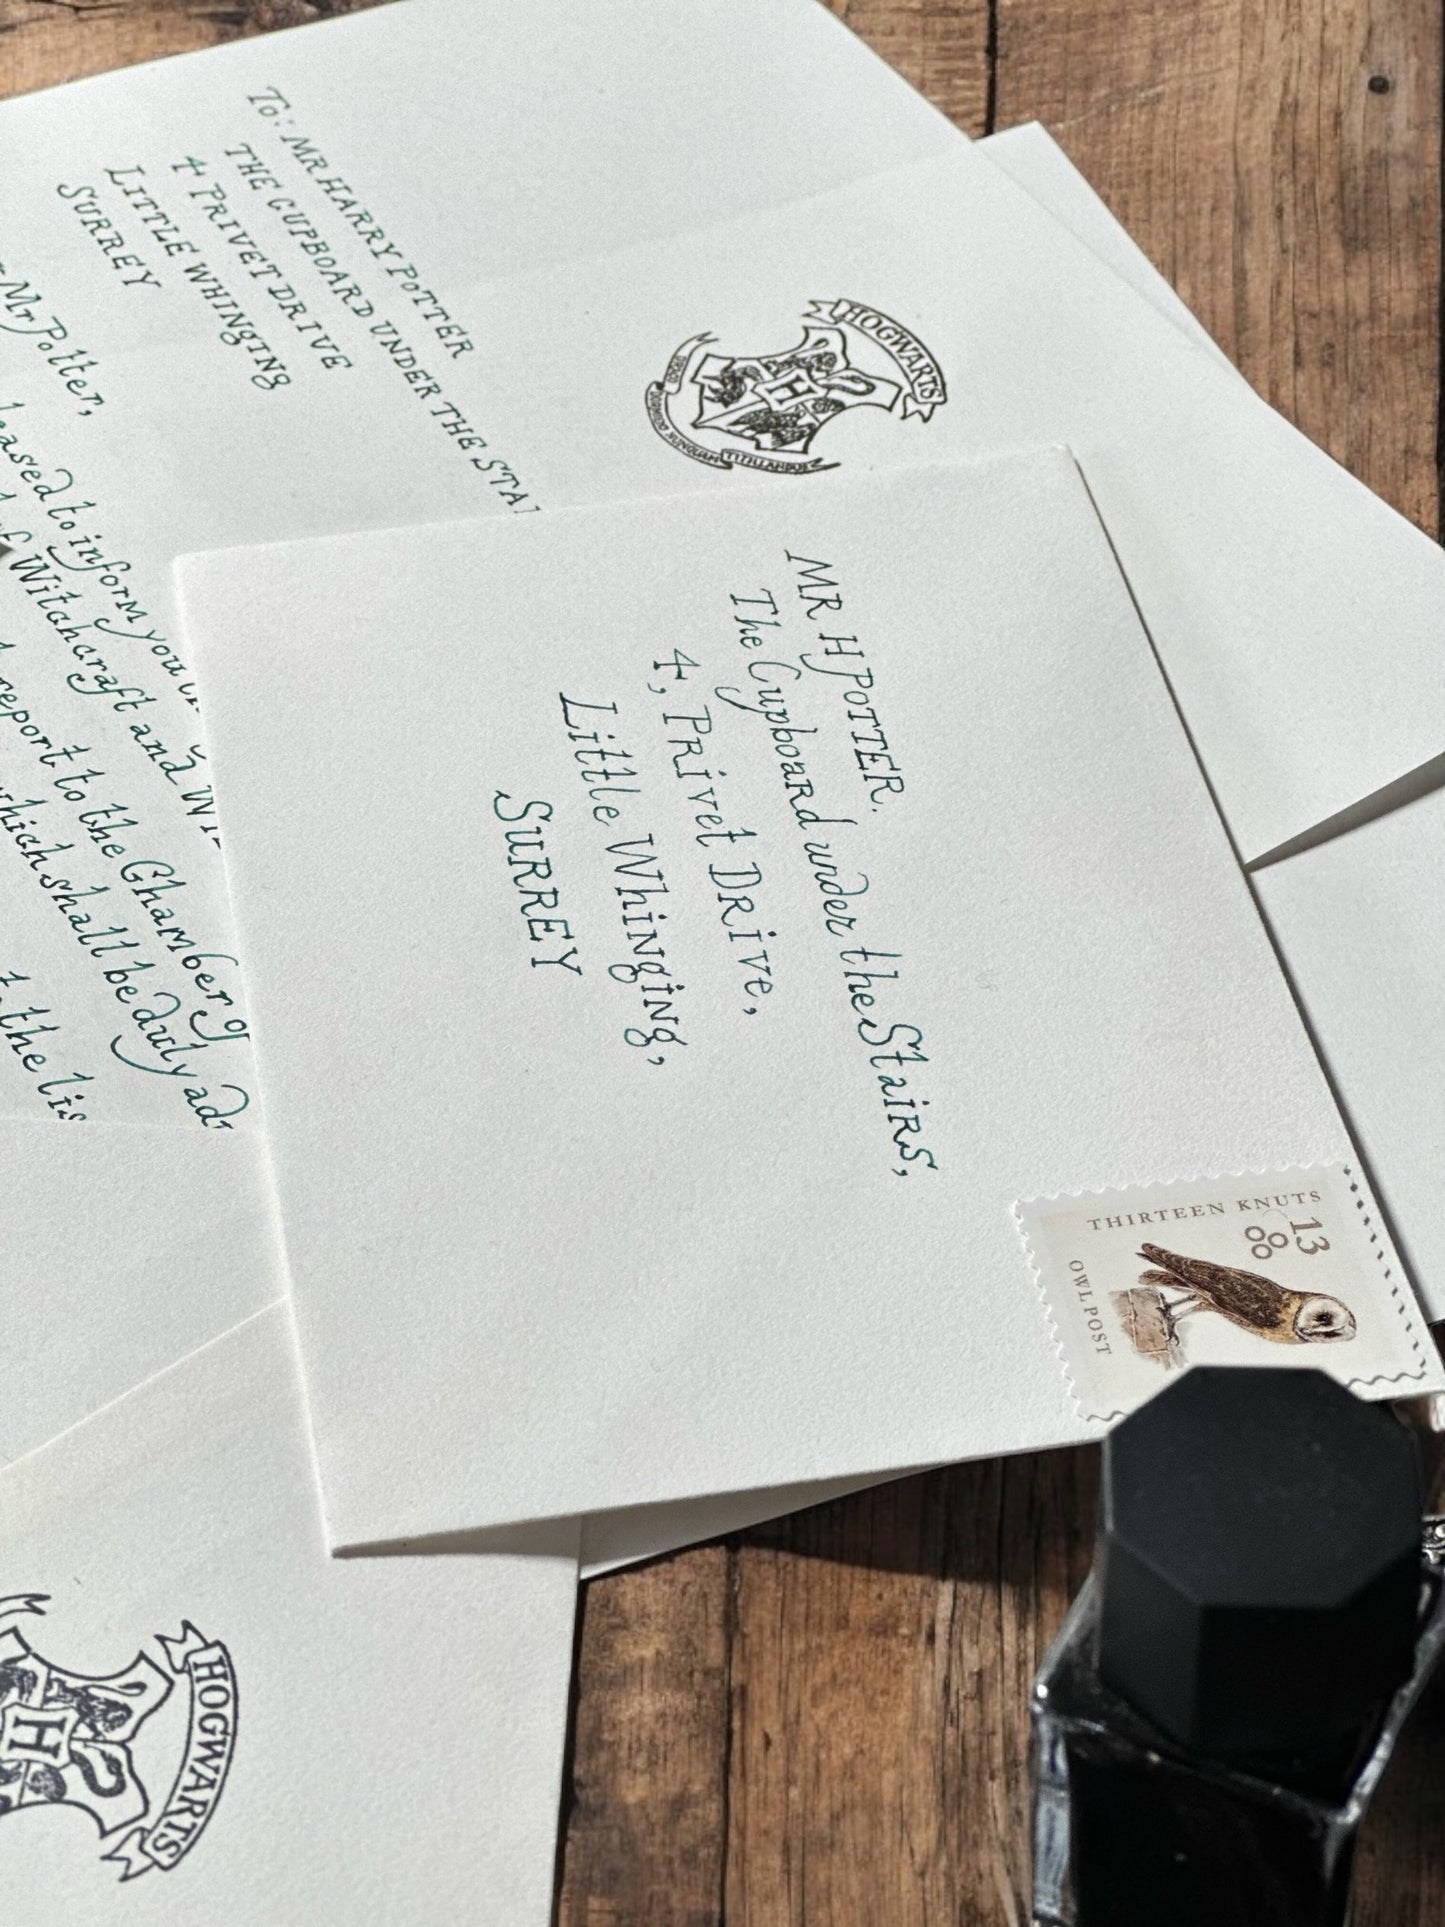 To: MR HARRY POTTER
THE CUPBOARD UNDER THE
4 PRIVET DRIVE
LITTLE WHINGING
SURREY
Mr Potter,
to inform you
Witchcraft and
report to the Chamber
which shall be duly
the
HOGWARTS
H
DRACO
DORMIENS NUNQUAM
TITILLANDUS
MR H POTTER.
The Cupboard under the Stairs,
4, Privet Drive,
Little Whinging,
SURREY
THIRTEEN KNUTS
13
OWL POST
HOGWARTS
H